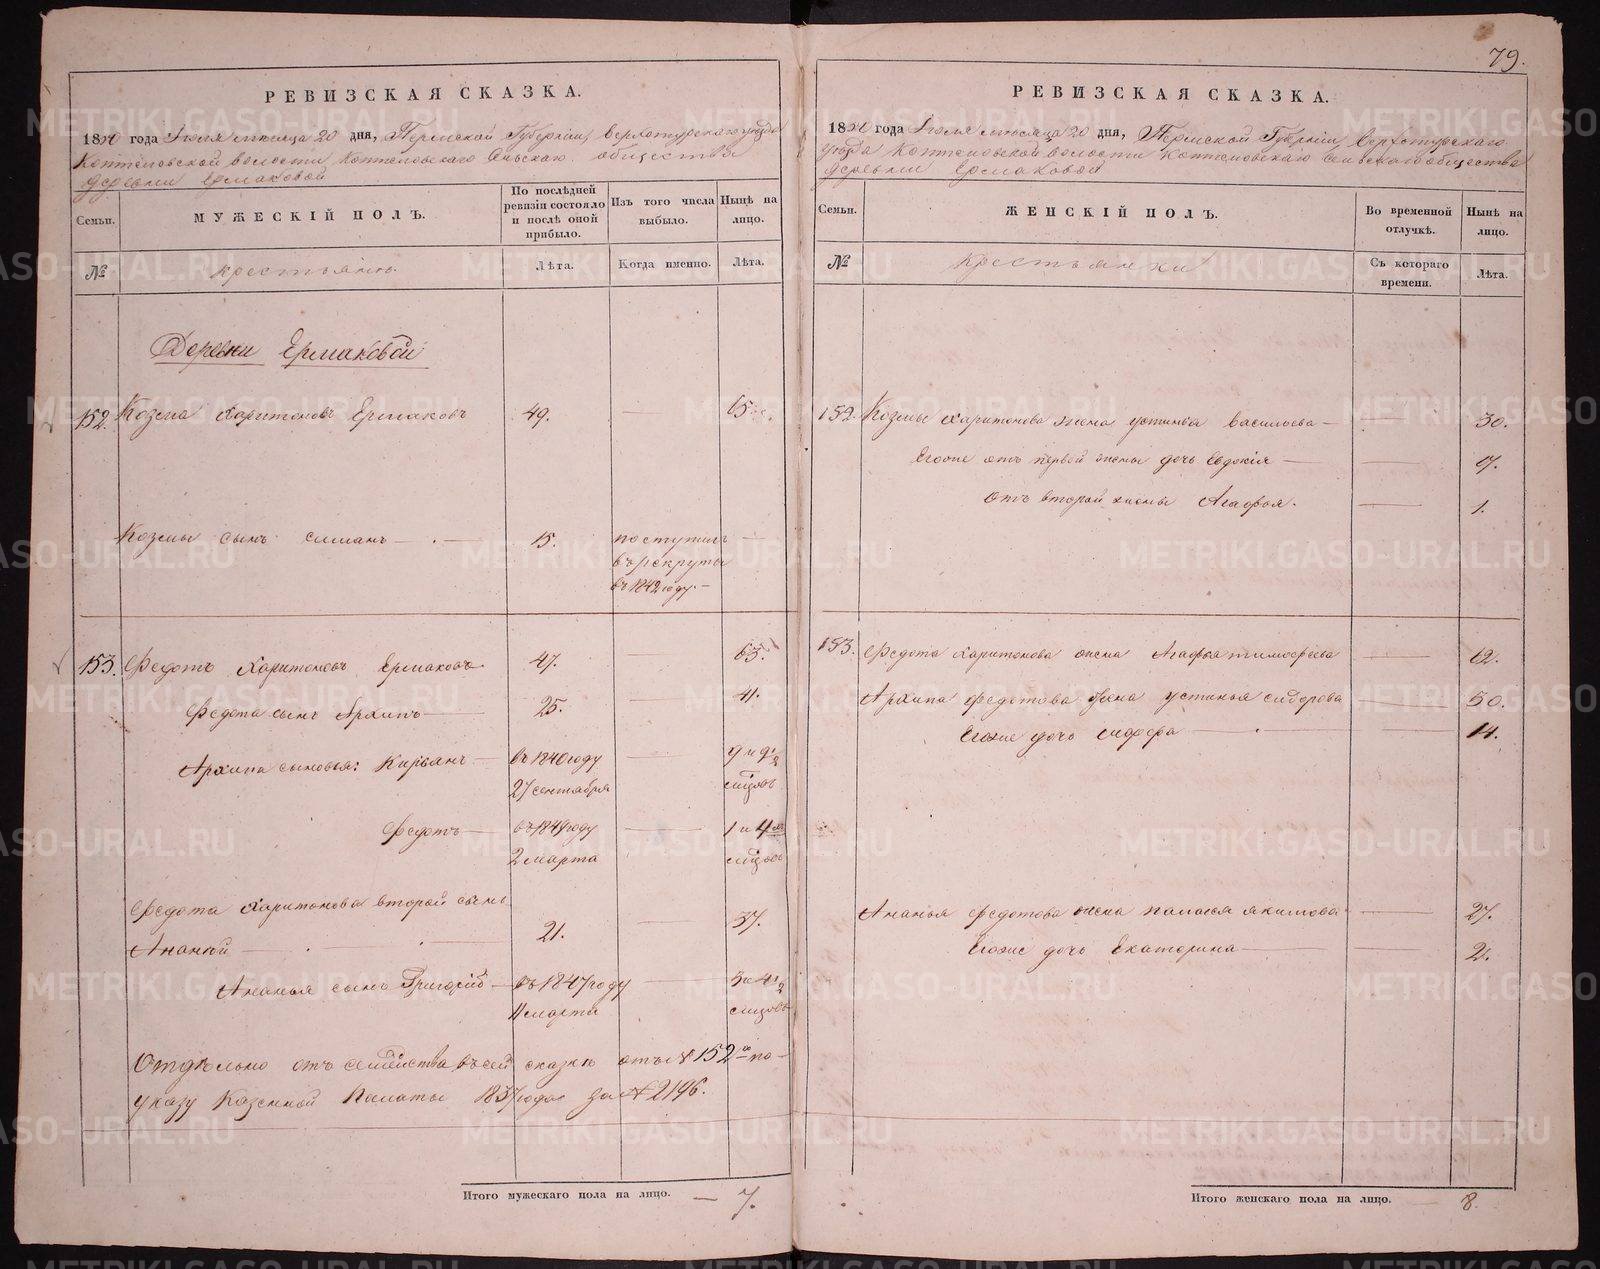 79.
РЕВИЗСКАЯ СКАЗКА.
1850 года Июля месяца 20 дня, Пермской Губерніи, Верхотурскаго уезда
Коптеловской волости Коптеловскаго Сельскаго общества
деревни Ермаковой
Семьи.
МУЖЕСКІЙ ПОЛЪ.
По послѣдней ревизіи состояло и послѣ оной прибыло.
Изъ того числа выбыло.
Нынѣ на лицо.
№
крестьянъ.
Лѣта.
Когда именно.
Лѣта.
Деревни Ермаковой
152. Козма Харитоновъ Ермаковъ 49. 65.
Козмы сынъ Симанъ 15. поступилъ
въ рекруты
въ 1842 году.
153. Федотъ Харитоновъ Ермаковъ 47. 63.
Федота сынъ Архипъ 25. 41.
Архипа сыновья: Кирьянъ въ 1840 году 9 и 9 1/2
27 сентября
Федотъ въ 1849 году 1 и 4
2 марта
Федота Харитонова второй сынъ
Ананій 21. 37.
Ананья сынъ Григорій въ 1847 году 3 и 4 1/2
11 марта
Отдѣльно отъ семейства въ сей сказкѣ отъ № 152 го по
указу Казенной Палаты 1837 года за № 2196.
Итого мужескаго пола на лицо. 7.
РЕВИЗСКАЯ СКАЗКА.
1850 года Июля месяца 20 дня, Пермской Губерніи, Верхотурскаго
уезда Коптеловской волости Коптеловскаго Сельскаго общества
деревни Ермаковой
Семьи.
ЖЕНСКІЙ ПОЛЪ.
Во временной отлучкѣ.
Нынѣ на лицо.
№
крестьянки
Съ котораго времени.
Лѣта.
152. Козмы Харитонова жена Устинья Васильева 30.
Егоже отъ первой жены дочь Евдокія 17.
отъ второй жены Агафья. 1.
153. Федота Харитонова жена Агафья Тимофеева 62.
Архипа Федотова жена Устинья Сидорова 50.
Егоже дочь 14.
Ананья Федотова жена Палагея Якимова 27.
Егоже дочь Екатерина 2.
Итого женскаго пола на лицо. 8.
METRIKI.GASO-URAL.RU